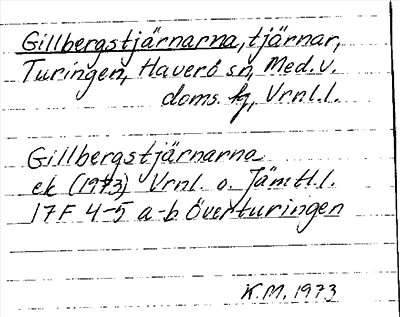 Gillbergstjärnarna, tjärnar,
Turingen, Haverö sn, Med.v.
doms. fg, Vrnl.l.
Gillbergstjärnarna
ek (1973) Vrnl. o. Jämtl.l.
17F 4-5 a-b Överturingen
K.M. 1973